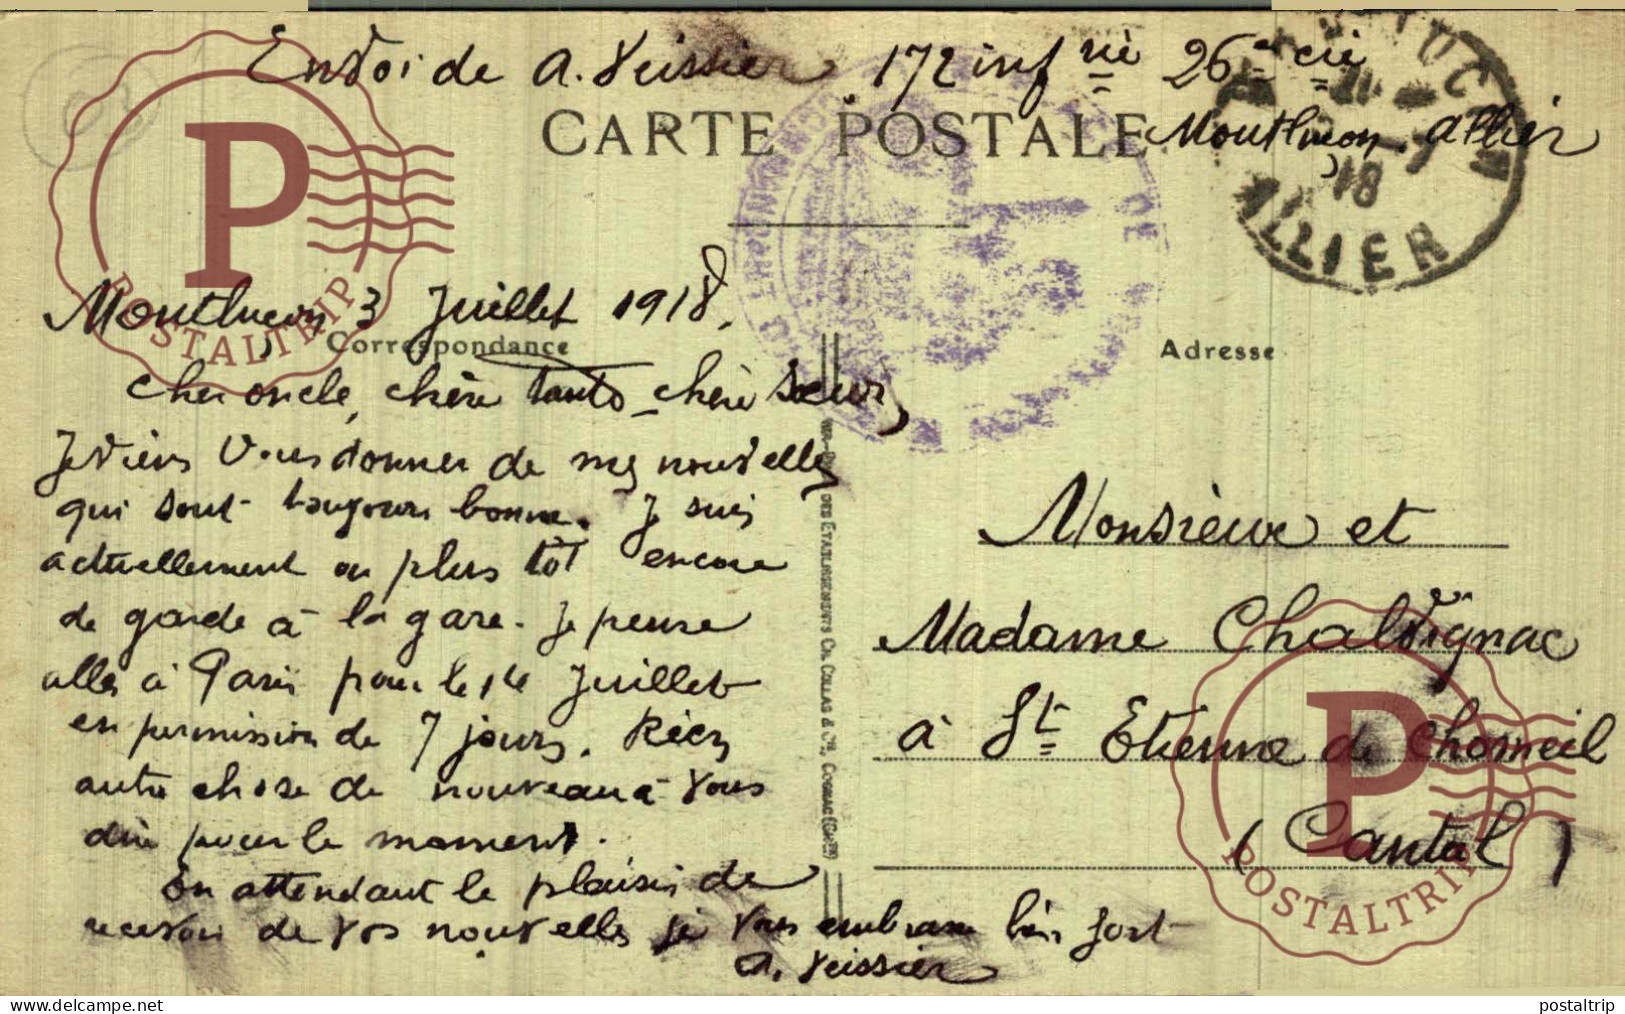 Envoi de A. Veissier, 172 infrie 26e cie
Montluçon, Allier
CARTE POSTALE
ALLIER
18
Montluçon 3 Juillet 1918,
Correspondance
Adresse
Cher oncle, chère tante, chère Sœur,
Je viens Vous donner de mes nouvelles
qui sont toujours bonne. Je suis
actuellement ou plus tôt encore
de garde à la gare. Je pense
aller à Paris pour le 14 Juillet
en permission de 7 jours. Rien
autre chose de nouveau à Vous
dire pour le moment.
En attendant le plaisir de
recevoir de vos nouvelles je Vous embrasse bien fort
A. Veissier
DES ÉTABLISSEMENTS CH. COLLAS & Cie, COGNAC
Monsieur et
Madame Chalvignac
à St Etienne de Chomeil
(Cantal)
P
POSTALTRIP
P
POSTALTRIP
www.delcampe.net
postaltrip